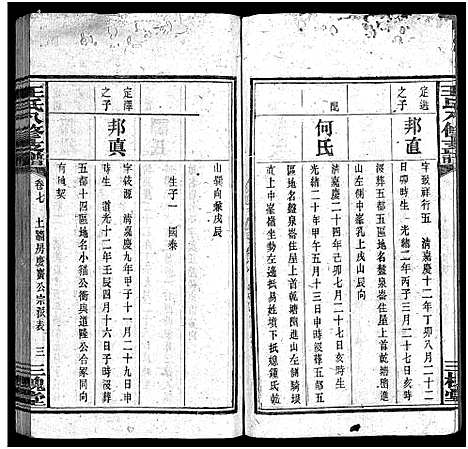 王氏八修支譜
三槐堂
定逃
之子
邦直
字致祥行五 清嘉慶十二年丁卯八月二十二
日卯時生 光緒二年丙子三月二十八日亥時
歿葬五都五區地名盤泉崙住屋上首乾塘
山左側騎塅中家孔上戌山辰向
配
何氏
清嘉慶二十四年己卯七月二十七日亥時生
光緒二十年甲午五月十三日申時歿葬五都五
區地名盤泉崙住屋上首乾塘隴進山左側騎塅
直上中峯嶺坐勢左邊抵易姓墳下抵熄鍾氏乾
山巽向兼戌辰
生子一 國泰
定澤
之子
邦真
字依源 清嘉慶九年甲子十一月二十九日申
時生 道光十二年壬辰四月十六日子時歿葬
五都十四區地名小福公衝與道隆公合冢同向
有碑契
王氏八修支譜
卷七
公宗派表
三
三槐堂